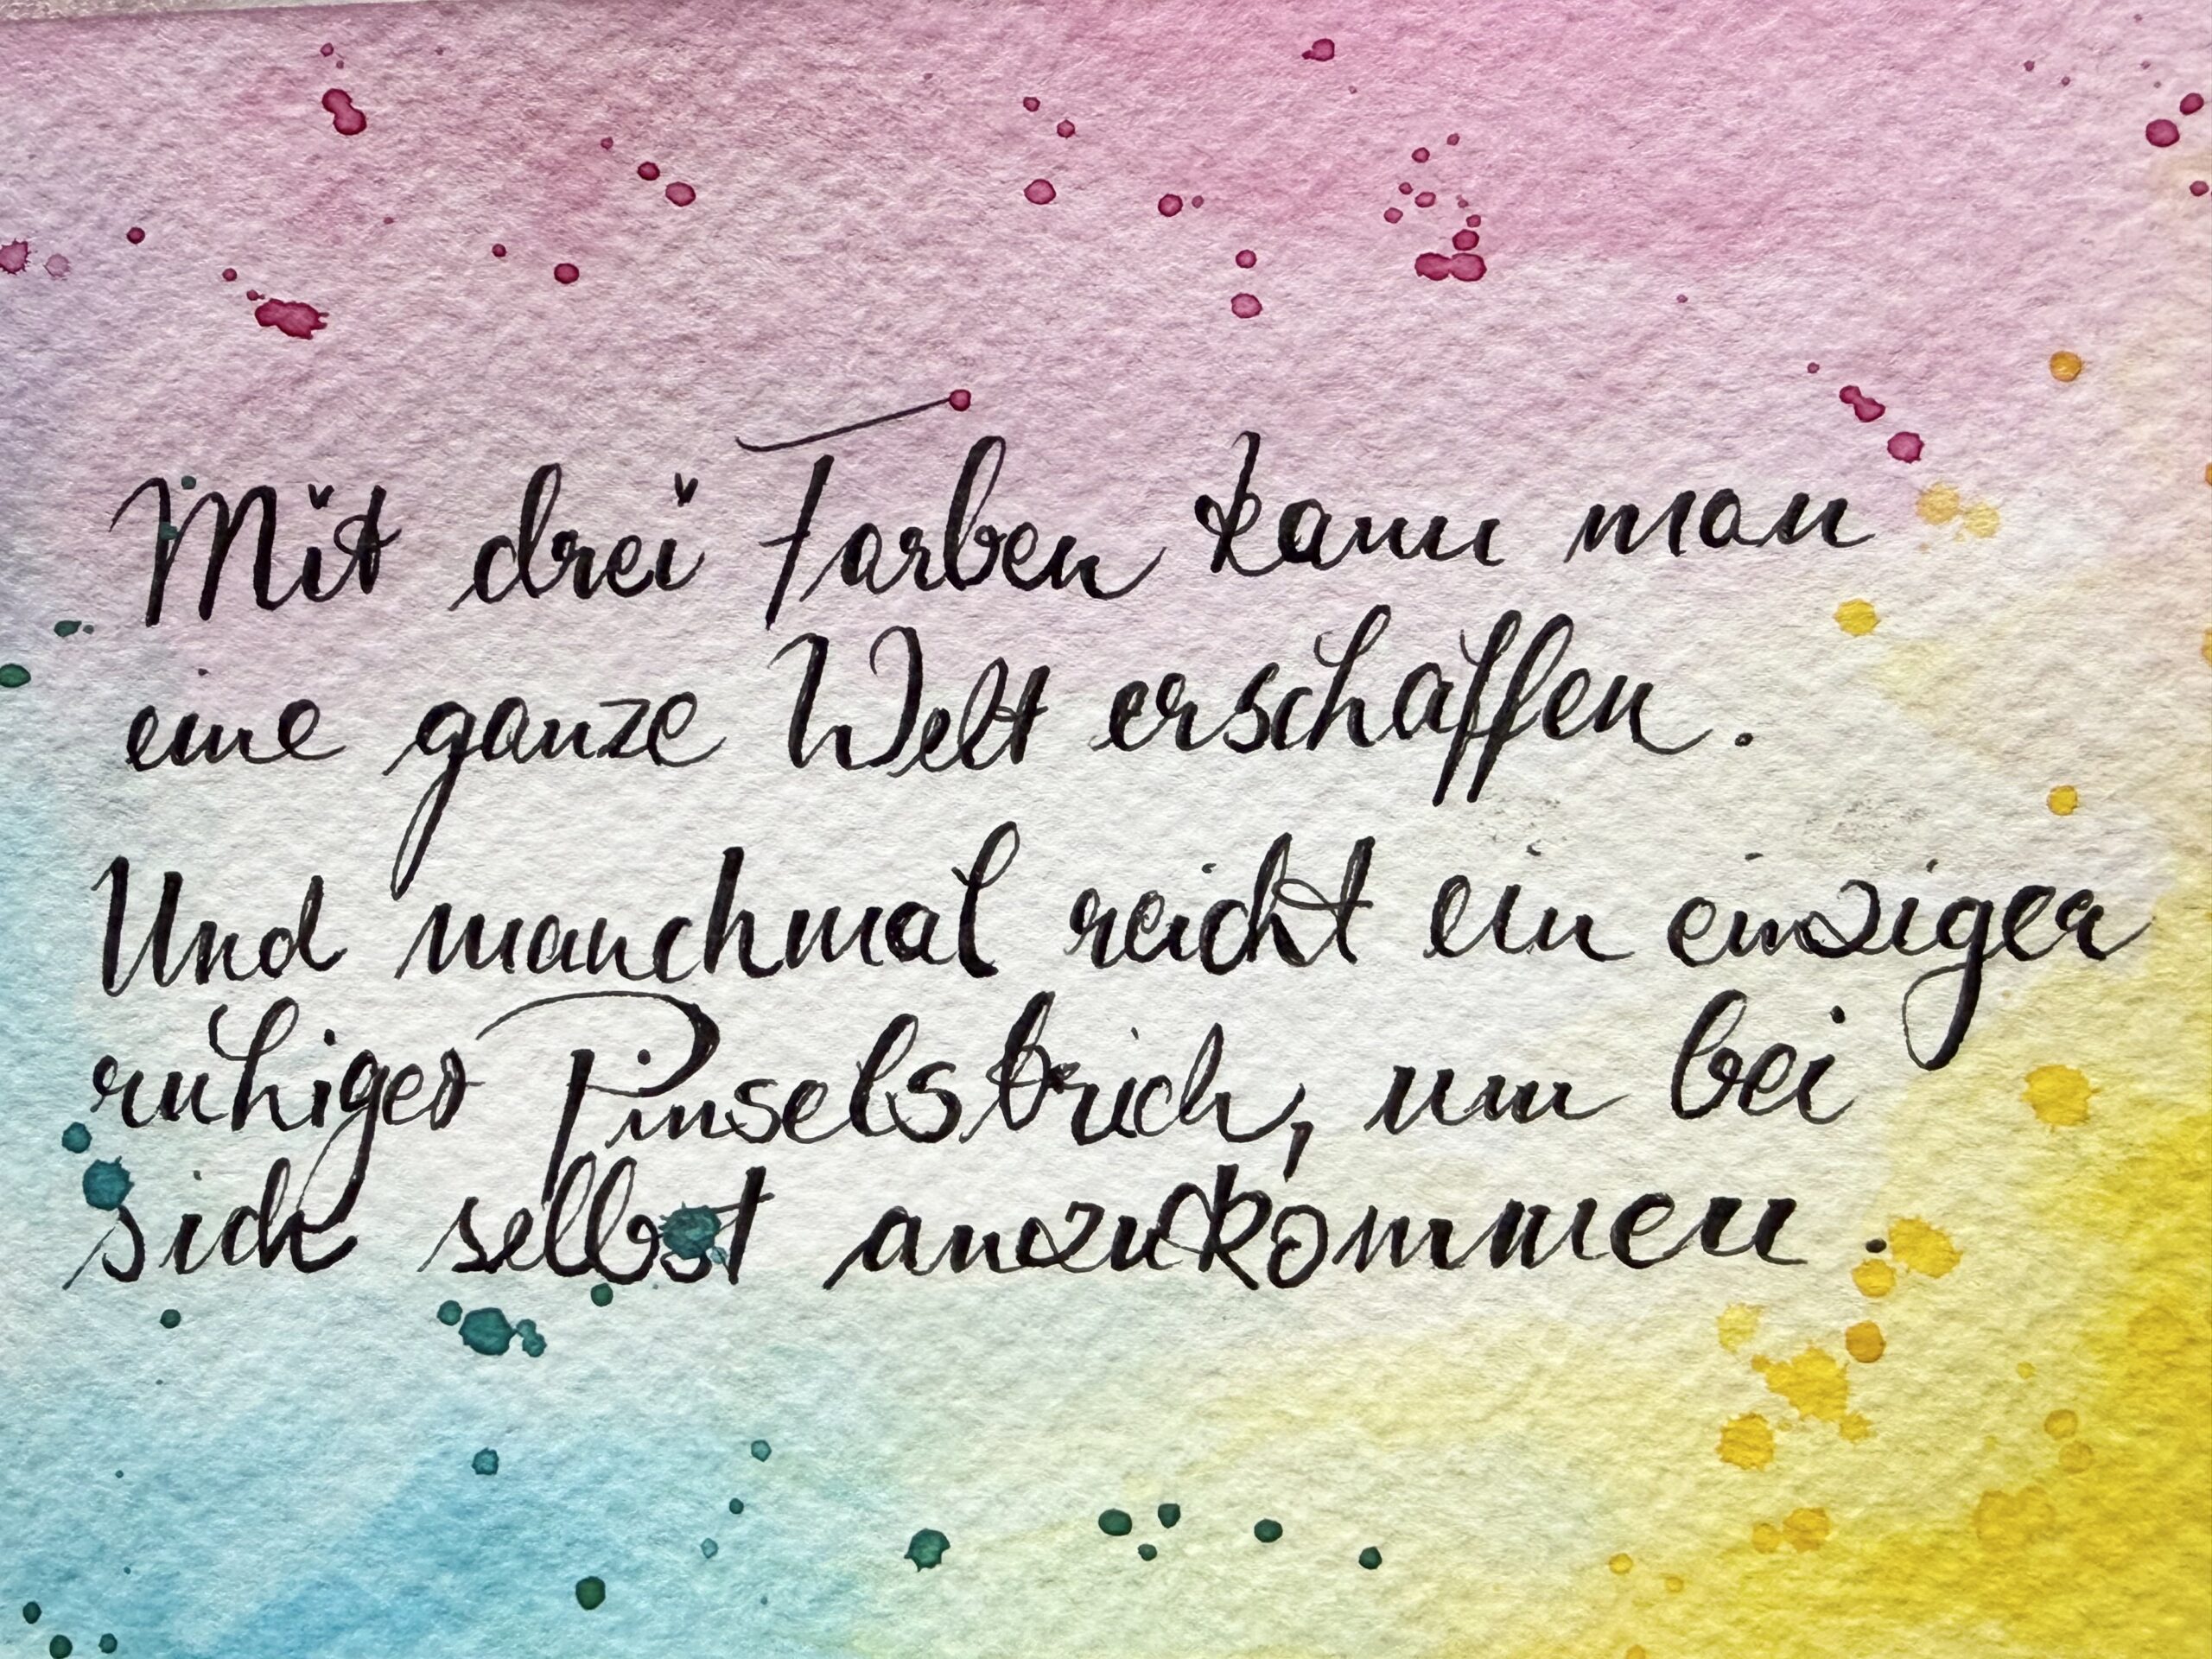 Mit drei Farben kann man
eine ganze Welt erschaffen.
Und manchmal reicht ein einziger
ruhiger Pinselstrich, um bei
sich selbst anzukommen.